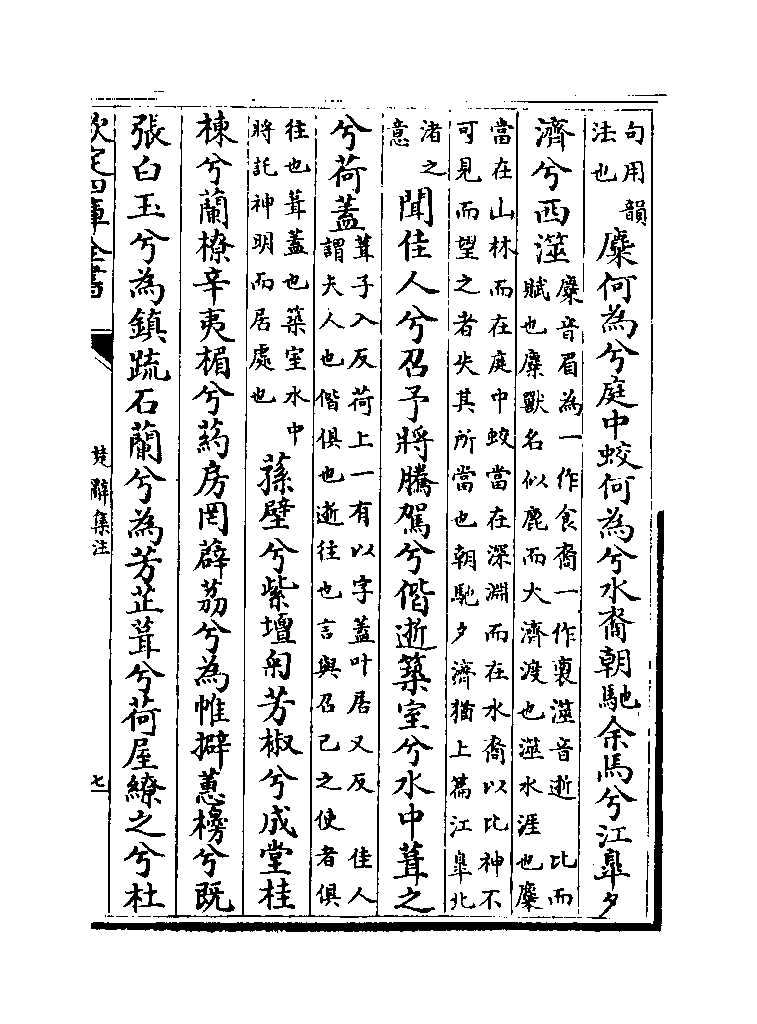 句用韻
法也
麋何為兮庭中蛟何為兮水裔朝馳余馬兮江臯夕
濟兮西澨
麋音眉為一作食裔一作裵澨音逝　比而
賦也麋獸名似鹿而大濟渡也澨水涯也麋
當在山林而在庭中蛟當在深淵而在水裔以比神不
可見而望之者失其所當也朝馳夕濟猶上篇江臯北
渚之
意
聞佳人兮召予將騰駕兮偕逝築室兮水中葺之
兮荷蓋
葺子入反荷上一有以字蓋叶居又反　佳人
謂夫人也偕俱也逝往也言與召己之使者俱
往也葺蓋也築室水中
將託神明而居處也
蓀壁兮紫壇匊芳椒兮成堂桂
棟兮蘭橑辛夷楣兮葯房罔薜荔兮為帷擗蕙櫋兮既
張白玉兮為鎮疏石蘭兮為芳芷葺兮荷屋繚之兮杜
欽定四庫全書
楚辭集注
七